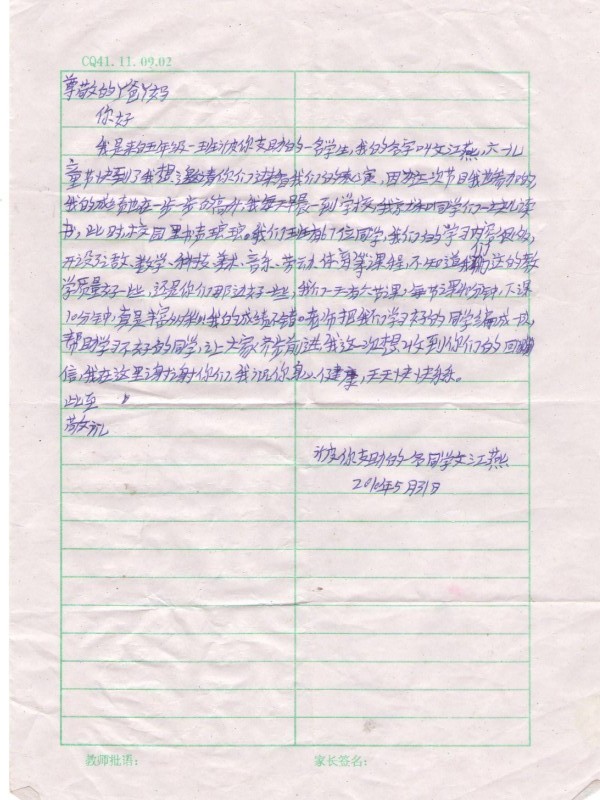 CQ41.11.09.02
尊敬的爸妈
你好
我是来自五年级一班被你支助的一名学生,我的名字叫文江燕,六一儿
童节快到了我想邀请你们过来看我们的表演,因为这次节目我参加的,
我的成绩也在一步一步的高升,我每天早晨一到学校,我就和同学们一起读
书,此时校园里书声琅琅。我们班有67位同学,我们的学习内容很多,
开设了语数、数学、科技、美术、音乐、劳动、体育等课程,不知道我们这的教
学质量好一些,还是你们那边好一些,我们一天有六节课,每节课40分钟,下课
10分钟,真是丰富,我的成绩不错。老师把我们学习好的同学编成一队,
帮助学习不好的同学,让大家齐步前进,我这一次想收到你们的回
信,我在这里谢谢你们,我祝你身心健康,天天快快乐乐。
此至
敬礼
被你支助的一名同学文江燕
2010年5月31日
教师批语: 家长签名: